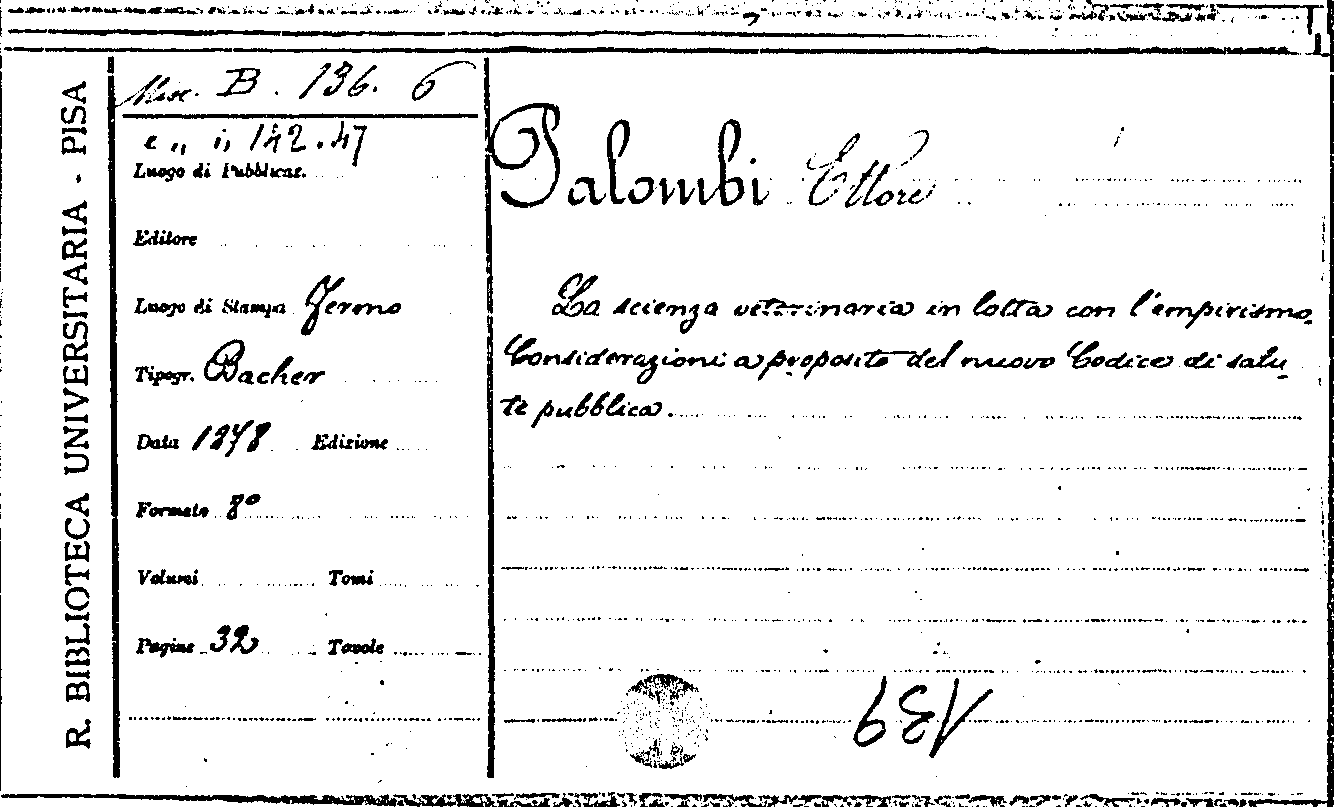 R. BIBLIOTECA UNIVERSITARIA - PISA
Misc. B. 136. 6
e „ i, 142.47
Luogo di Pubblicaz.
Editore
Luogo di Stampa Fermo
Tipogr. Bacher
Data 1878 Edizione
Formato 8°
Volumi Tomi
Pagine 32 Tavole
Palombi Ettore
La scienza veterinaria in lotta con l'empirismo.
Considerazioni a proposito del nuovo Codice di salu-
te pubblica.
139